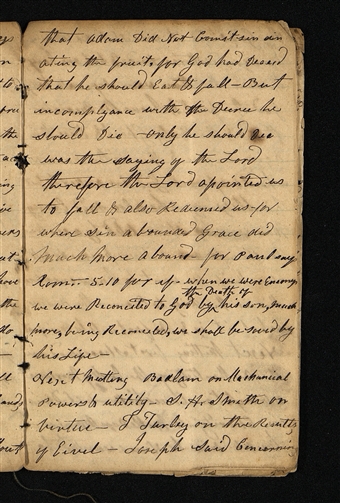 that Adam Did Not Comit sin in
ating the fruits for God had Decred
that he should Eat & fall - But
in complyance with the Decree he
should Die - only he should Die
was the saying of the Lord
therefore the Lord apointed us
to fall & also Redeemed us - for
where sin abounded Grace did
Much More abound - for Paul says
Rom - 5.10 for if - when we were Enemys
we were Reconciled to God by the Death of his son, much
more, being Reconciled, we shall be saved by
his Life -
Next Meeting Badlam on Mechanical
Powers & utility - S. H. Smith on
virtue - T Turley on the Results
of Eivel - Joseph Said Concerning